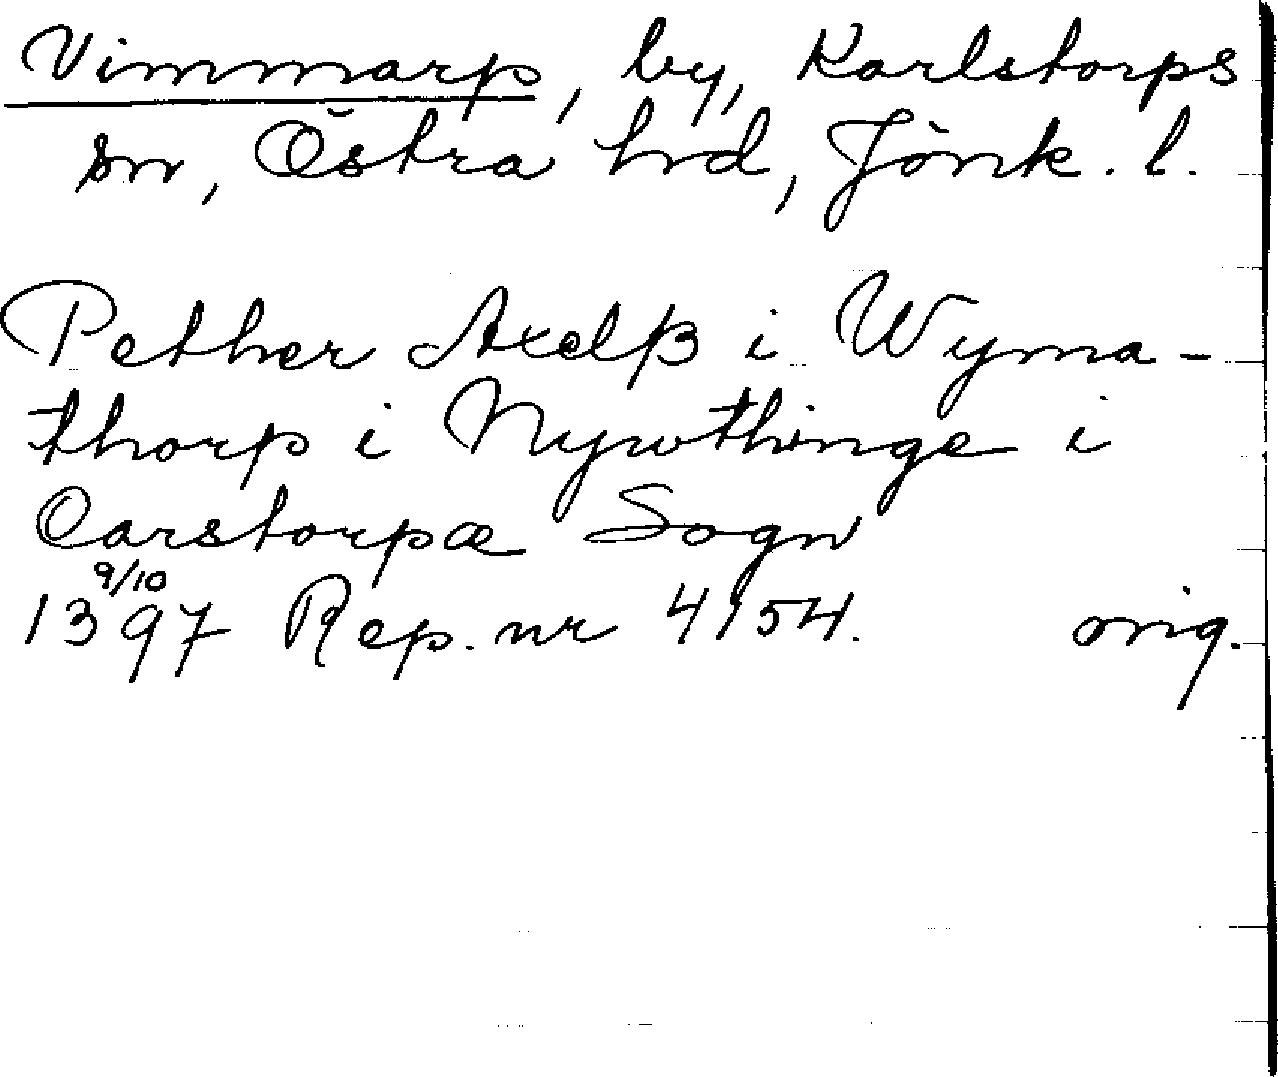 Vimmarp, by, Karlstorps
sn, Östra hrd, Jönk. l.
Pether Axelß i Wyma-
thorp i Nywthinge i
Carstorpæ Sogn
13 9/10 97 Rep. nr 4154. orig.